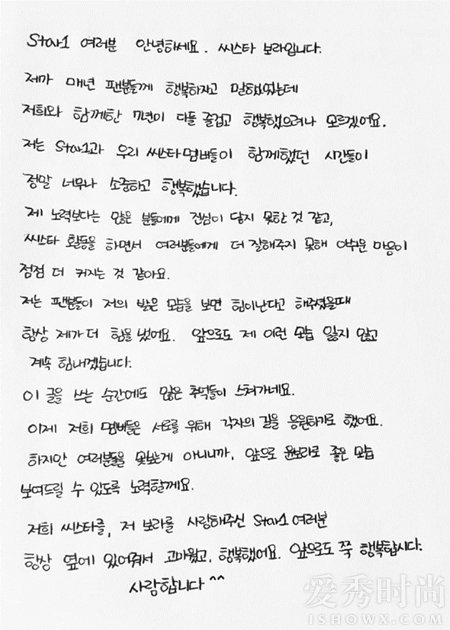 Star1 여러분 안녕하세요. 씨스타 보라입니다.
제가 매년 팬분들께 행복하자고 말했었는데
저희와 함께한 7년이 다들 즐겁고 행복했으려나 모르겠어요.
저는 Star1과 우리 씨스타멤버들이 함께했던 시간들이
정말 너무나 소중하고 행복했습니다.
제 노력보다는 많은 분들에게 진심이 닿지 못한 것 같고,
씨스타 활동을 하면서 여러분들에게 더 잘해주지 못해 아쉬운 마음이
점점 더 커지는 것 같아요.
저는 팬분들이 저의 밝은 모습을 보면 힘이난다고 해주셨을때
항상 제가 더 힘을 냈어요. 앞으로도 제 이런 모습 잃지 않고
계속 힘내겠습니다.
이 글을 쓰는 순간에도 많은 추억들이 스쳐가네요.
이제 저희 멤버들은 서로를 위해 각자의 길을 응원하기로 했어요.
하지만 여러분들을 못보는게 아니니까, 앞으로 윤보라로 좋은 모습
보여드릴 수 있도록 노력할께요.
저희 씨스타를, 저 보라를 사랑해주신 Star1 여러분
항상 옆에 있어줘서 고마웠고, 행복했어요. 앞으로도 쭉 행복합시다.
사랑합니다^^
爱秀时尚
ISHOWX.COM